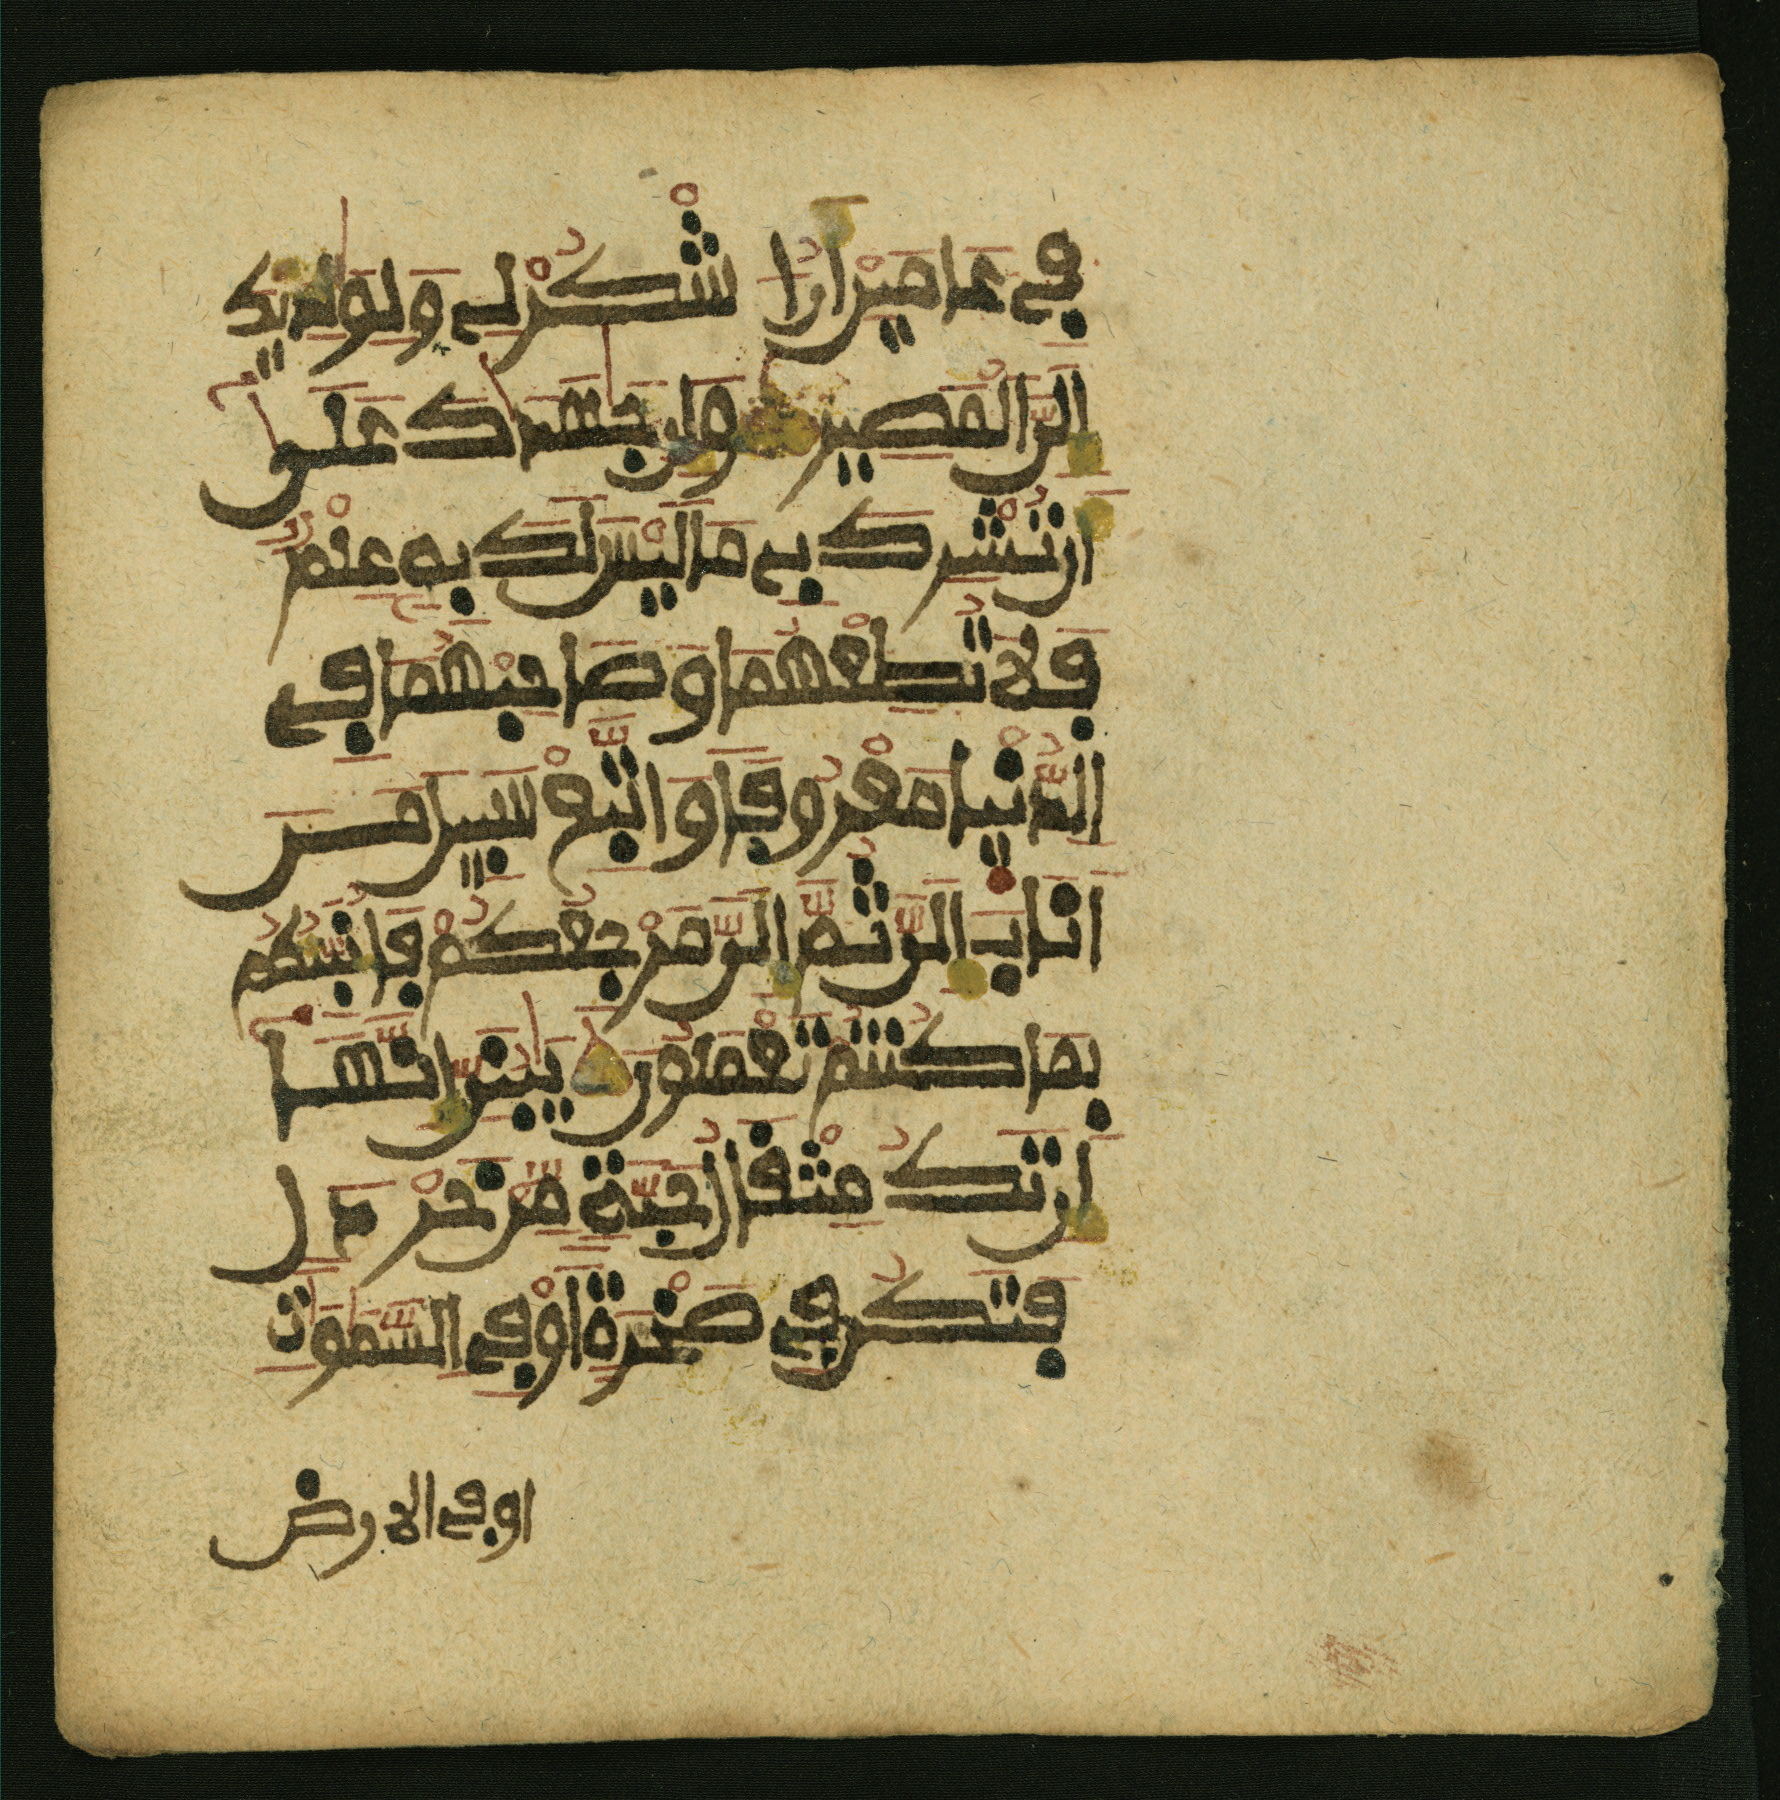 في عامين ان اشكر لي ولولديك
الي المصير وان جهداك علي
ان تشرك بي ما ليس لك به علم
فلا تطعهما وصاحبهما في
الدنيا معروفا واتبع سبيل من
اناب الي ثم الي مرجعكم فانبئكم
بما كنتم تعملون يبني انها
ان تك مثقال حبة من خردل
فتكن في صخرة او في السموت
او في الارض